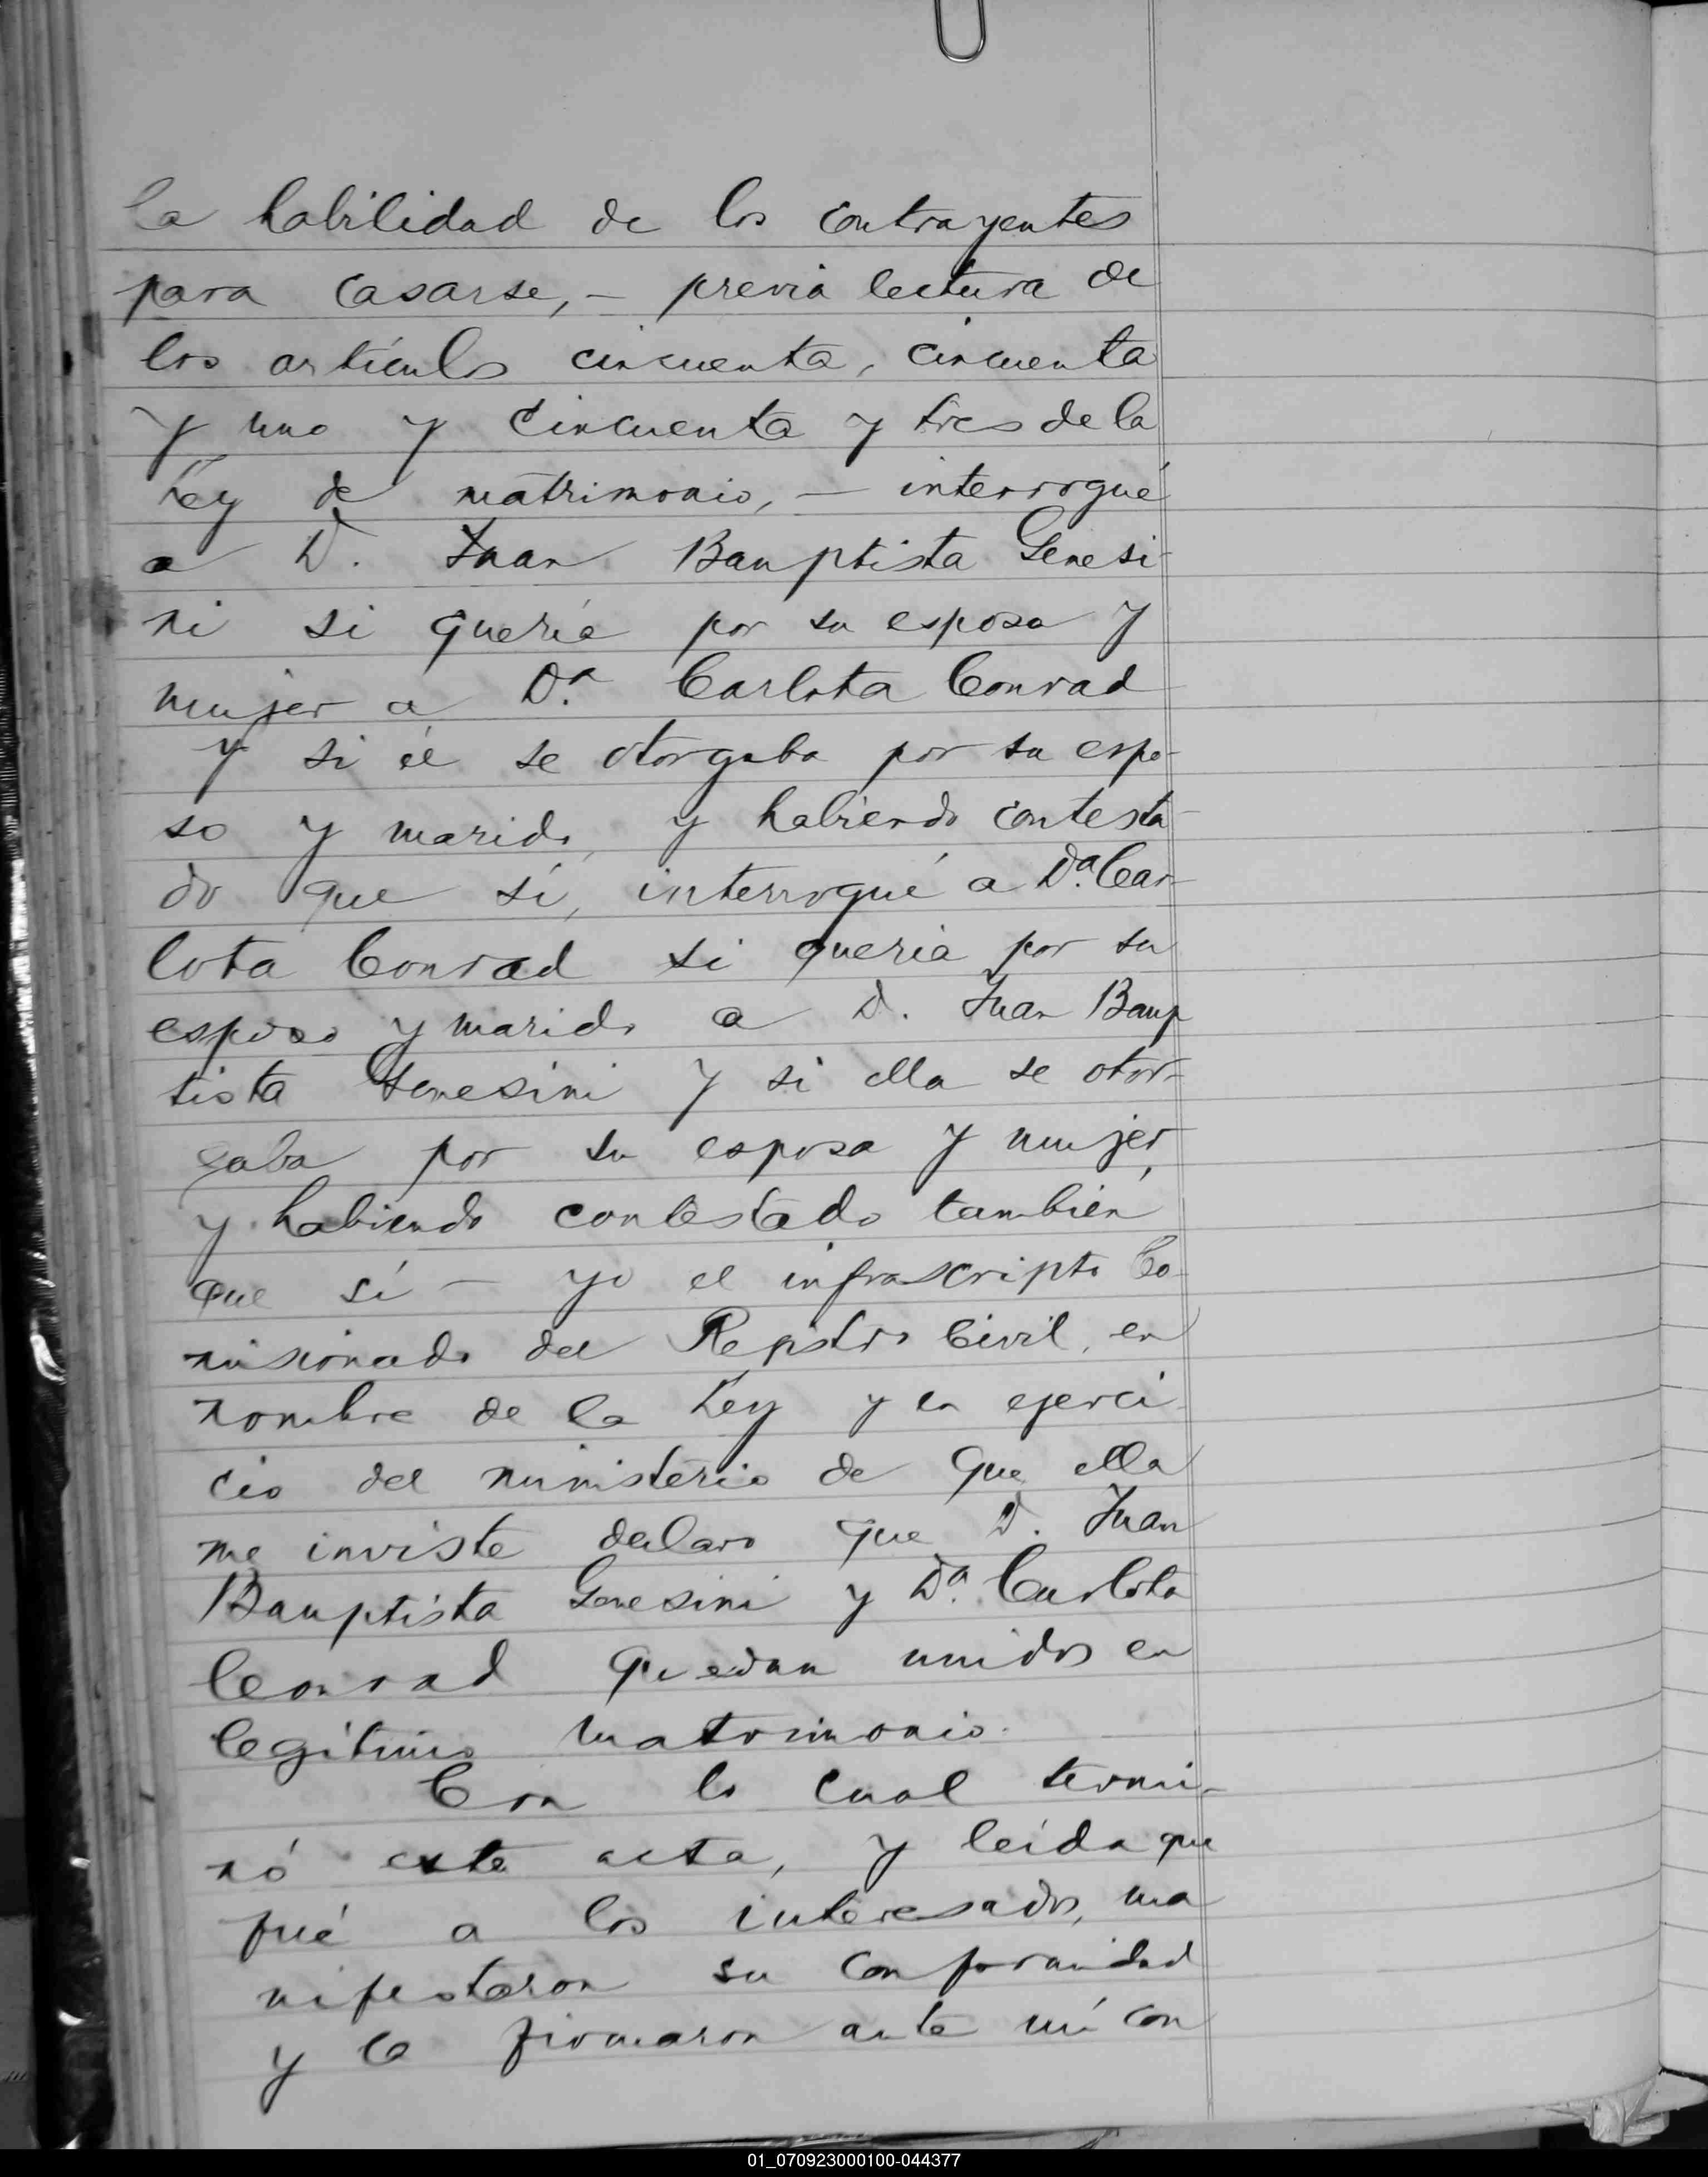 la habilidad de los contrayentes
para casarse, - previa lectura de
los artículos cincuenta, cincuenta
y uno y cincuenta y tres de la
Ley de matrimonio, - interrogué
a D. Juan Bauptista Genesi-
ni si quería por su esposa y
mujer a Da. Carlota Conrad
y si él se otorgaba por su espo-
so y marido, y habiendo contesta-
do que sí, interrogué a Da. Car-
lota Conrad si quería por su
esposo y marido a D. Juan Baup
tista Genesini y si ella se otor-
gaba por su esposa y mujer,
y habiendo contestado también
que sí - yo el infrascripto Co-
misionado del Registro Civil, en
nombre de la Ley y en ejerci-
cio del ministerio de que ella
me inviste declaro que D. Juan
Bauptista Genesini y Da. Carlota
Conrad quedan unidos en
legítimo matrimonio.
Con lo cual termi-
nó este acta, y leída que
fué a los interesados, ma
nifestaron su conformidad
y la firmaron ante mí con
01_070923000100-044377